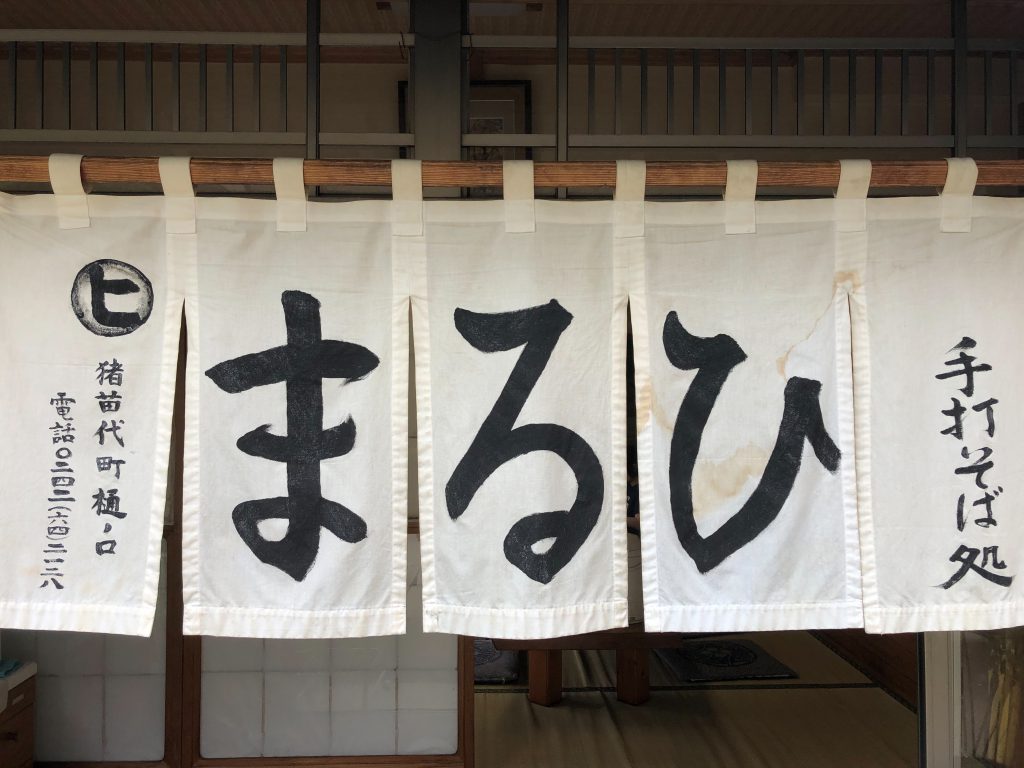 手打そば処
まるひ
ヒ
猪苗代町樋ノ口
電話〇二四二(六四)二一二八